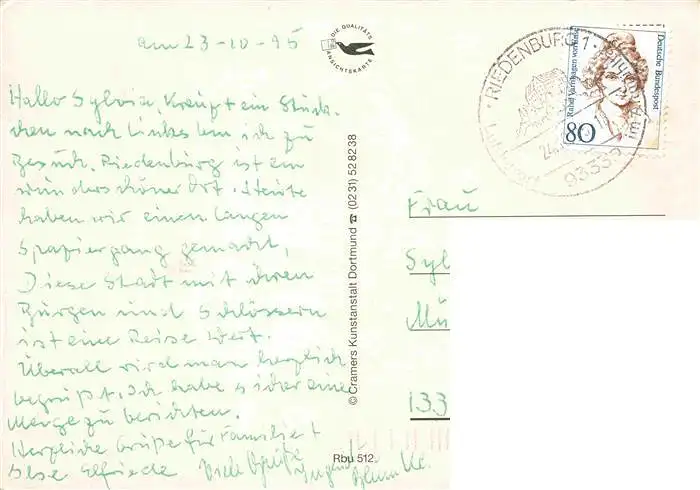 am 23-10-95
Hallo Sylvia, ein Stück-
chen nach links bin ich zu
Besuch. Riedenburg ist ein
wunderschöner Ort. Heute
haben wir einen langen
Spapiergang gemacht,
Diese Stadt mit ihren
Burgen und Schlössern
ist eine Reise Wert.
Überall wird man herzlich
begrüßt. Ich habe sicher eine
Menge zu berichten.
Herzliche Grüße für Familie
Elfriede Viele Grüße
DIE QUALITÄTS
ANSICHTSKARTE
© Cramers Kunstanstalt Dortmund ☎ (0231) 528238
Rbu 512
RIEDENBURG 1
93339
Deutsche Bundespost
Rahel Varnhagen von Ense
80
Frau
Syl
Mü
133